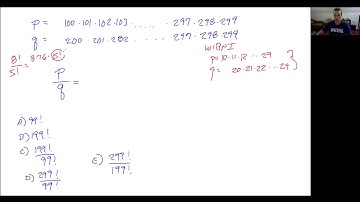 p = 100·101·102·103 ..... 297·298·299
q = 200·201·202 ..... 297·298·299
8!/5! = 8·7·6·5!
WIBNI
p=10·11·12 ... 29
q = 20·21·22 ... 29
p/q =
A) 99!
B) 199!
C) 199!/99!
D) 299!/99!
E) 299!/199!